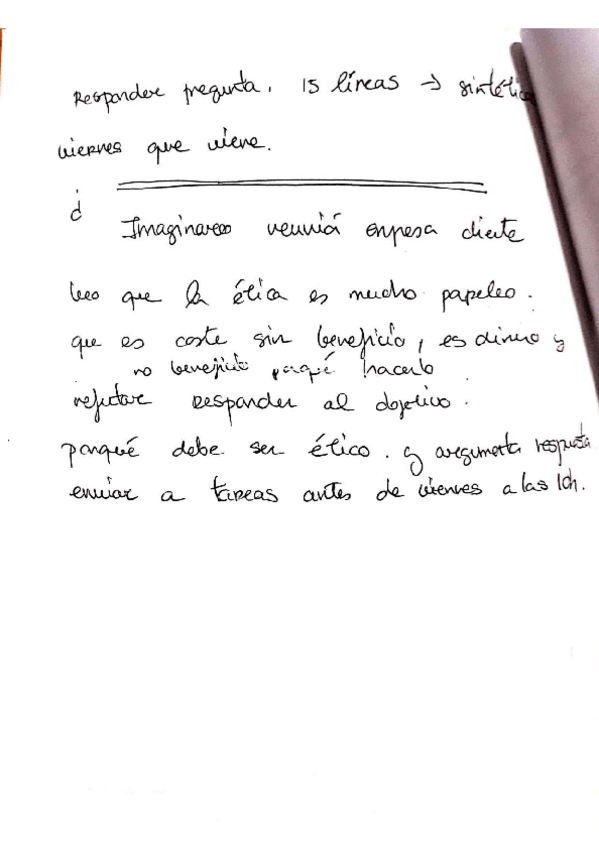 Responder pregunta. 15 líneas → sintética
viernes que viene.
Imaginaros reunión enpresa cliente
leo que la ética es mucho papeleo.
que es coste sin beneficio, es dinero y
no beneficio porqué hacerlo
refutar responder al objetivo.
porqué debe ser ético. y argumenta respuesta
enviar a tareas antes de viernes a las 10h.